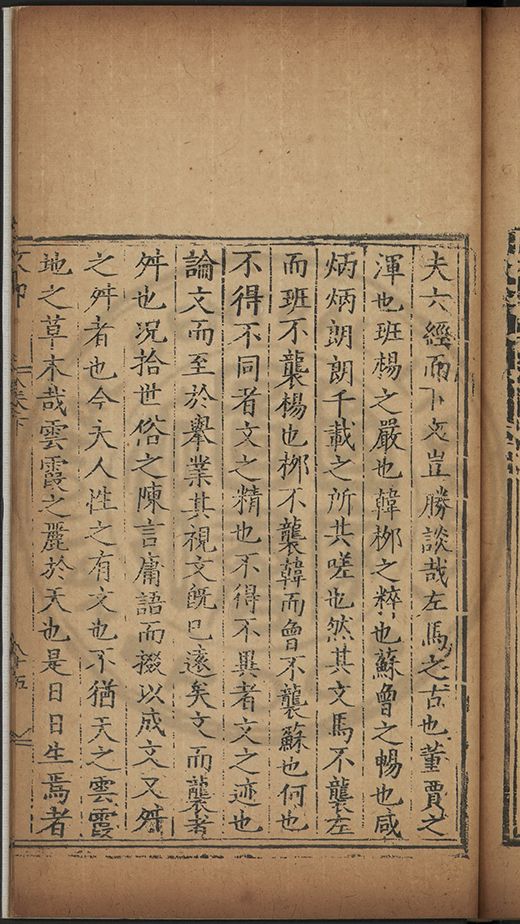 夫六經而下文豈勝談哉左馬之古也董賈之
渾也班楊之嚴也韓栁之粹也蘇曾之暢也咸
炳炳朗朗千載之所共嗟也然其文馬不襲左
而班不襲楊也栁不襲韓而曾不襲蘇也何也
不得不同者文之精也不得不異者文之迹也
論文而至於舉業其視文既已遠矣文而襲者
舛也况拾世俗之陳言庸語而掇以成文又舛
之舛者也今夫人性之有文也不猶天之雲霞
地之草木哉雲霞之麗於天也是日日生焉者